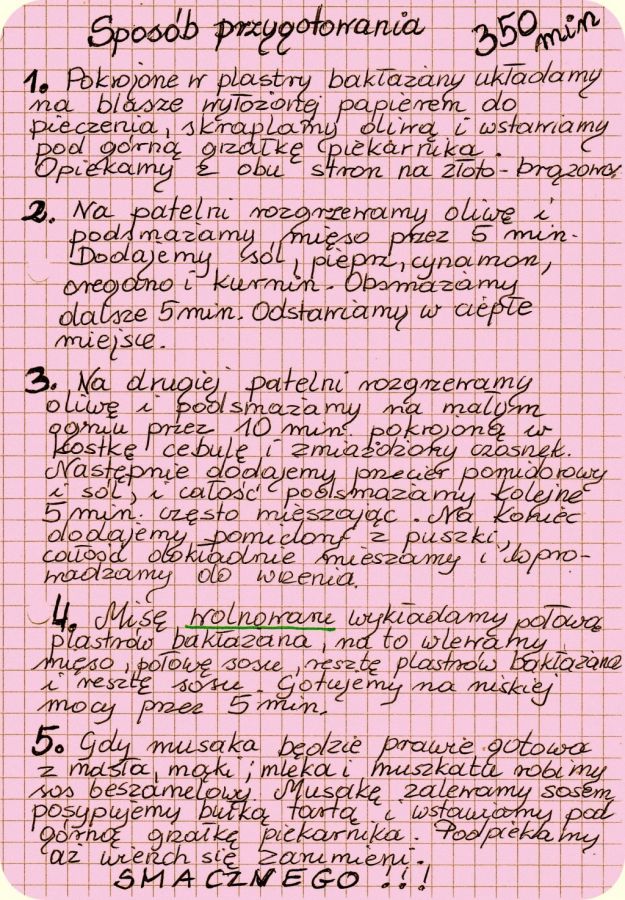 Sposób przygotowania 350 min
1. Pokrojone w plastry bakłażany układamy
na blasze wyłożonej papierem do
pieczenia, skraplamy oliwą i wstawiamy
pod górną grzałkę piekarnika.
Opiekamy z obu stron na złoto-brązowo.
2. Na patelni rozgrzewamy oliwę i
podsmażamy mięso przez 5 min.
Dodajemy sól, pieprz, cynamon,
oregano i kurmin. Obsmażamy
dalsze 5 min. Odstawiamy w ciepłe
miejsce.
3. Na drugiej patelni rozgrzewamy
oliwę i podsmażamy na małym
ogniu przez 10 min. pokrojoną w
kostkę cebulę i zmiażdżony czosnek.
Następnie dodajemy przecier pomidorowy
i sól, i całość podsmażamy kolejne
5 min. często mieszając. Na koniec
dodajemy pomidory z puszki,
całość dokładnie mieszamy i dopro-
wadzamy do wrzenia.
4. Misę wolnowaru wykładamy połową
plastrów bakłażana, na to wlewamy
mięso, połowę sosu, resztę plastrów bakłażana
i resztę sosu. Gotujemy na niskiej
mocy przez 5 min.
5. Gdy musaka będzie prawie gotowa
z masła, mąki, mleka i muszkatu robimy
sos beszamelowy. Musakę zalewamy sosem
posypujemy bułką tartą i wstawiamy pod
górną grzałkę piekarnika. Podpiekamy
aż wierzch się zarumieni.
SMACZNEGO !!!